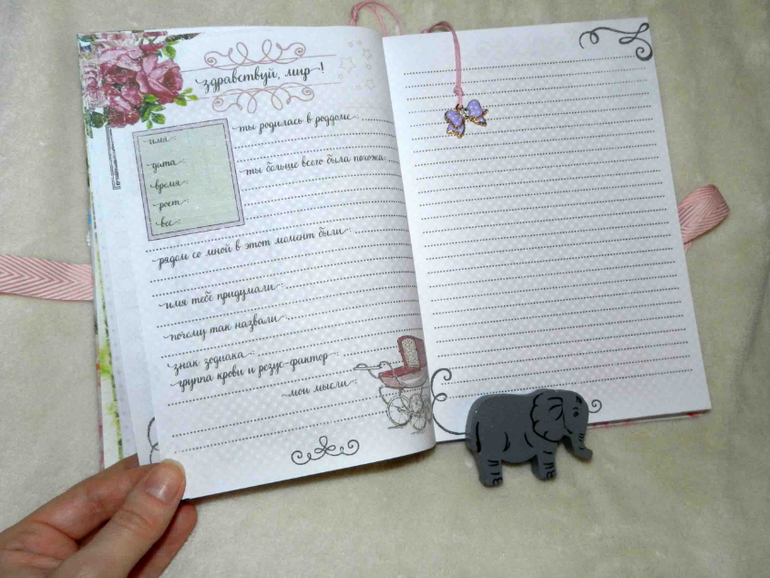 здравствуй, мир!
имя:
дата:
время:
рост:
вес:
ты родилась в роддоме:
ты больше всего была похожа:
рядом со мной в этот момент были:
имя тебе придумали:
почему так назвали:
знак зодиака:
группа крови и резус-фактор:
мои мысли: